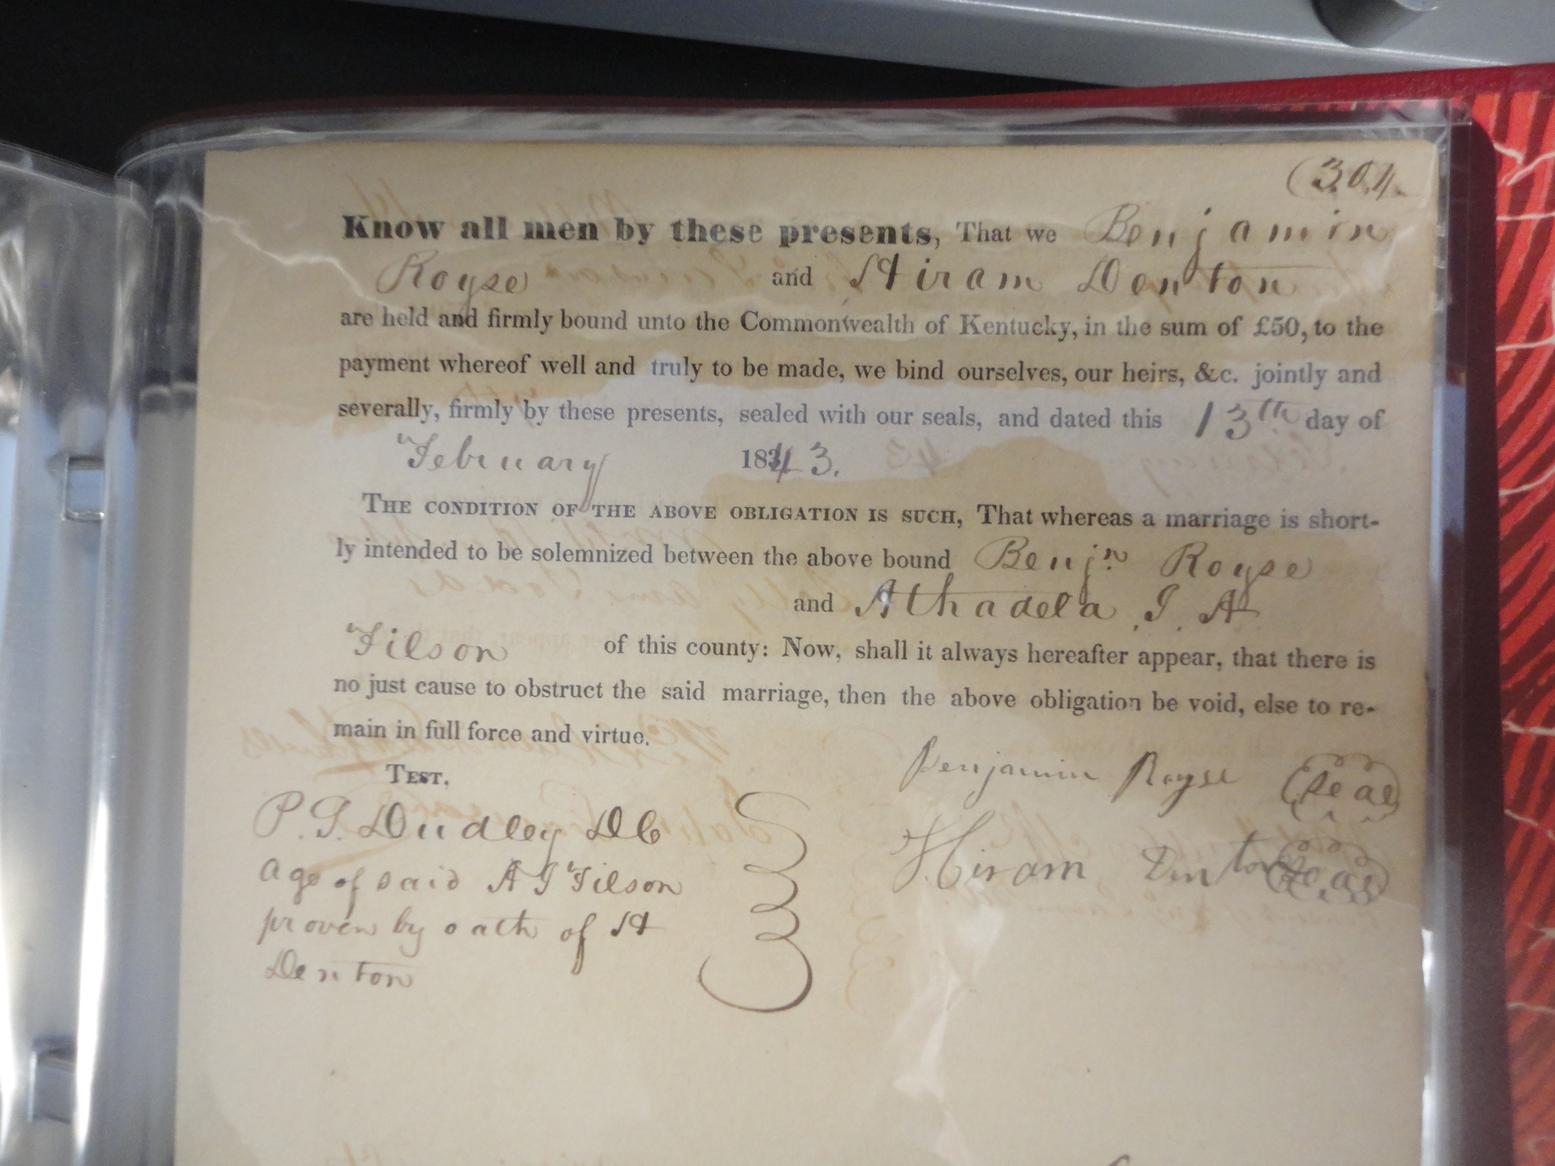 (304.
Know all men by these presents, That we Benjamin
Royse and Hiram Denton
are held and firmly bound unto the Commonwealth of Kentucky, in the sum of £50, to the
payment whereof well and truly to be made, we bind ourselves, our heirs, &c. jointly and
severally, firmly by these presents, sealed with our seals, and dated this 13th day of
February 1843.
THE CONDITION OF THE ABOVE OBLIGATION IS SUCH, That whereas a marriage is short-
ly intended to be solemnized between the above bound Benjn. Royse
and Athadela J. A
Filson of this county: Now, shall it always hereafter appear, that there is
no just cause to obstruct the said marriage, then the above obligation be void, else to re-
main in full force and virtue.
TEST. Benjamin Royse (Seal)
P. G. Dudley DC Hiram Denton (Seal)
Age of said A J Filson
proven by oath of H
Denton